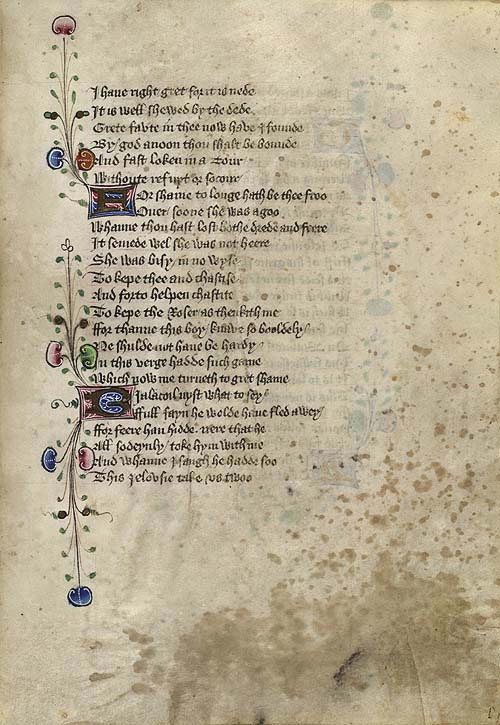 I haue right gret for it is nede
It is well shewed by the dede
Grete faute in thee now haue I founde
By god anoon thou shalt be bounde
And fast loken in a tour
Withoute refuyt or socour
For shame to longe hath be thee froo
Ouer soone she was agoo
Whanne thou hast lost bothe drede and feere
It semede wel she was not heere
She was bisy in no wyse
To kepe thee and chastise
And forto helpen chastite
To kepe the Roser as thenkith me
ffor thanne this boy knaue so booldely
Ne shulde not haue be hardy
In this verge hadde such game
Which now me turneth to gret shame
Bialacoil nyst what to sey
ffull fayn he wolde haue fled awey
ffor feere han hidde nere that he
All sodeynly toke hym with me
And whanne I saugh he hadde soo
This Ielousie take vs twoo